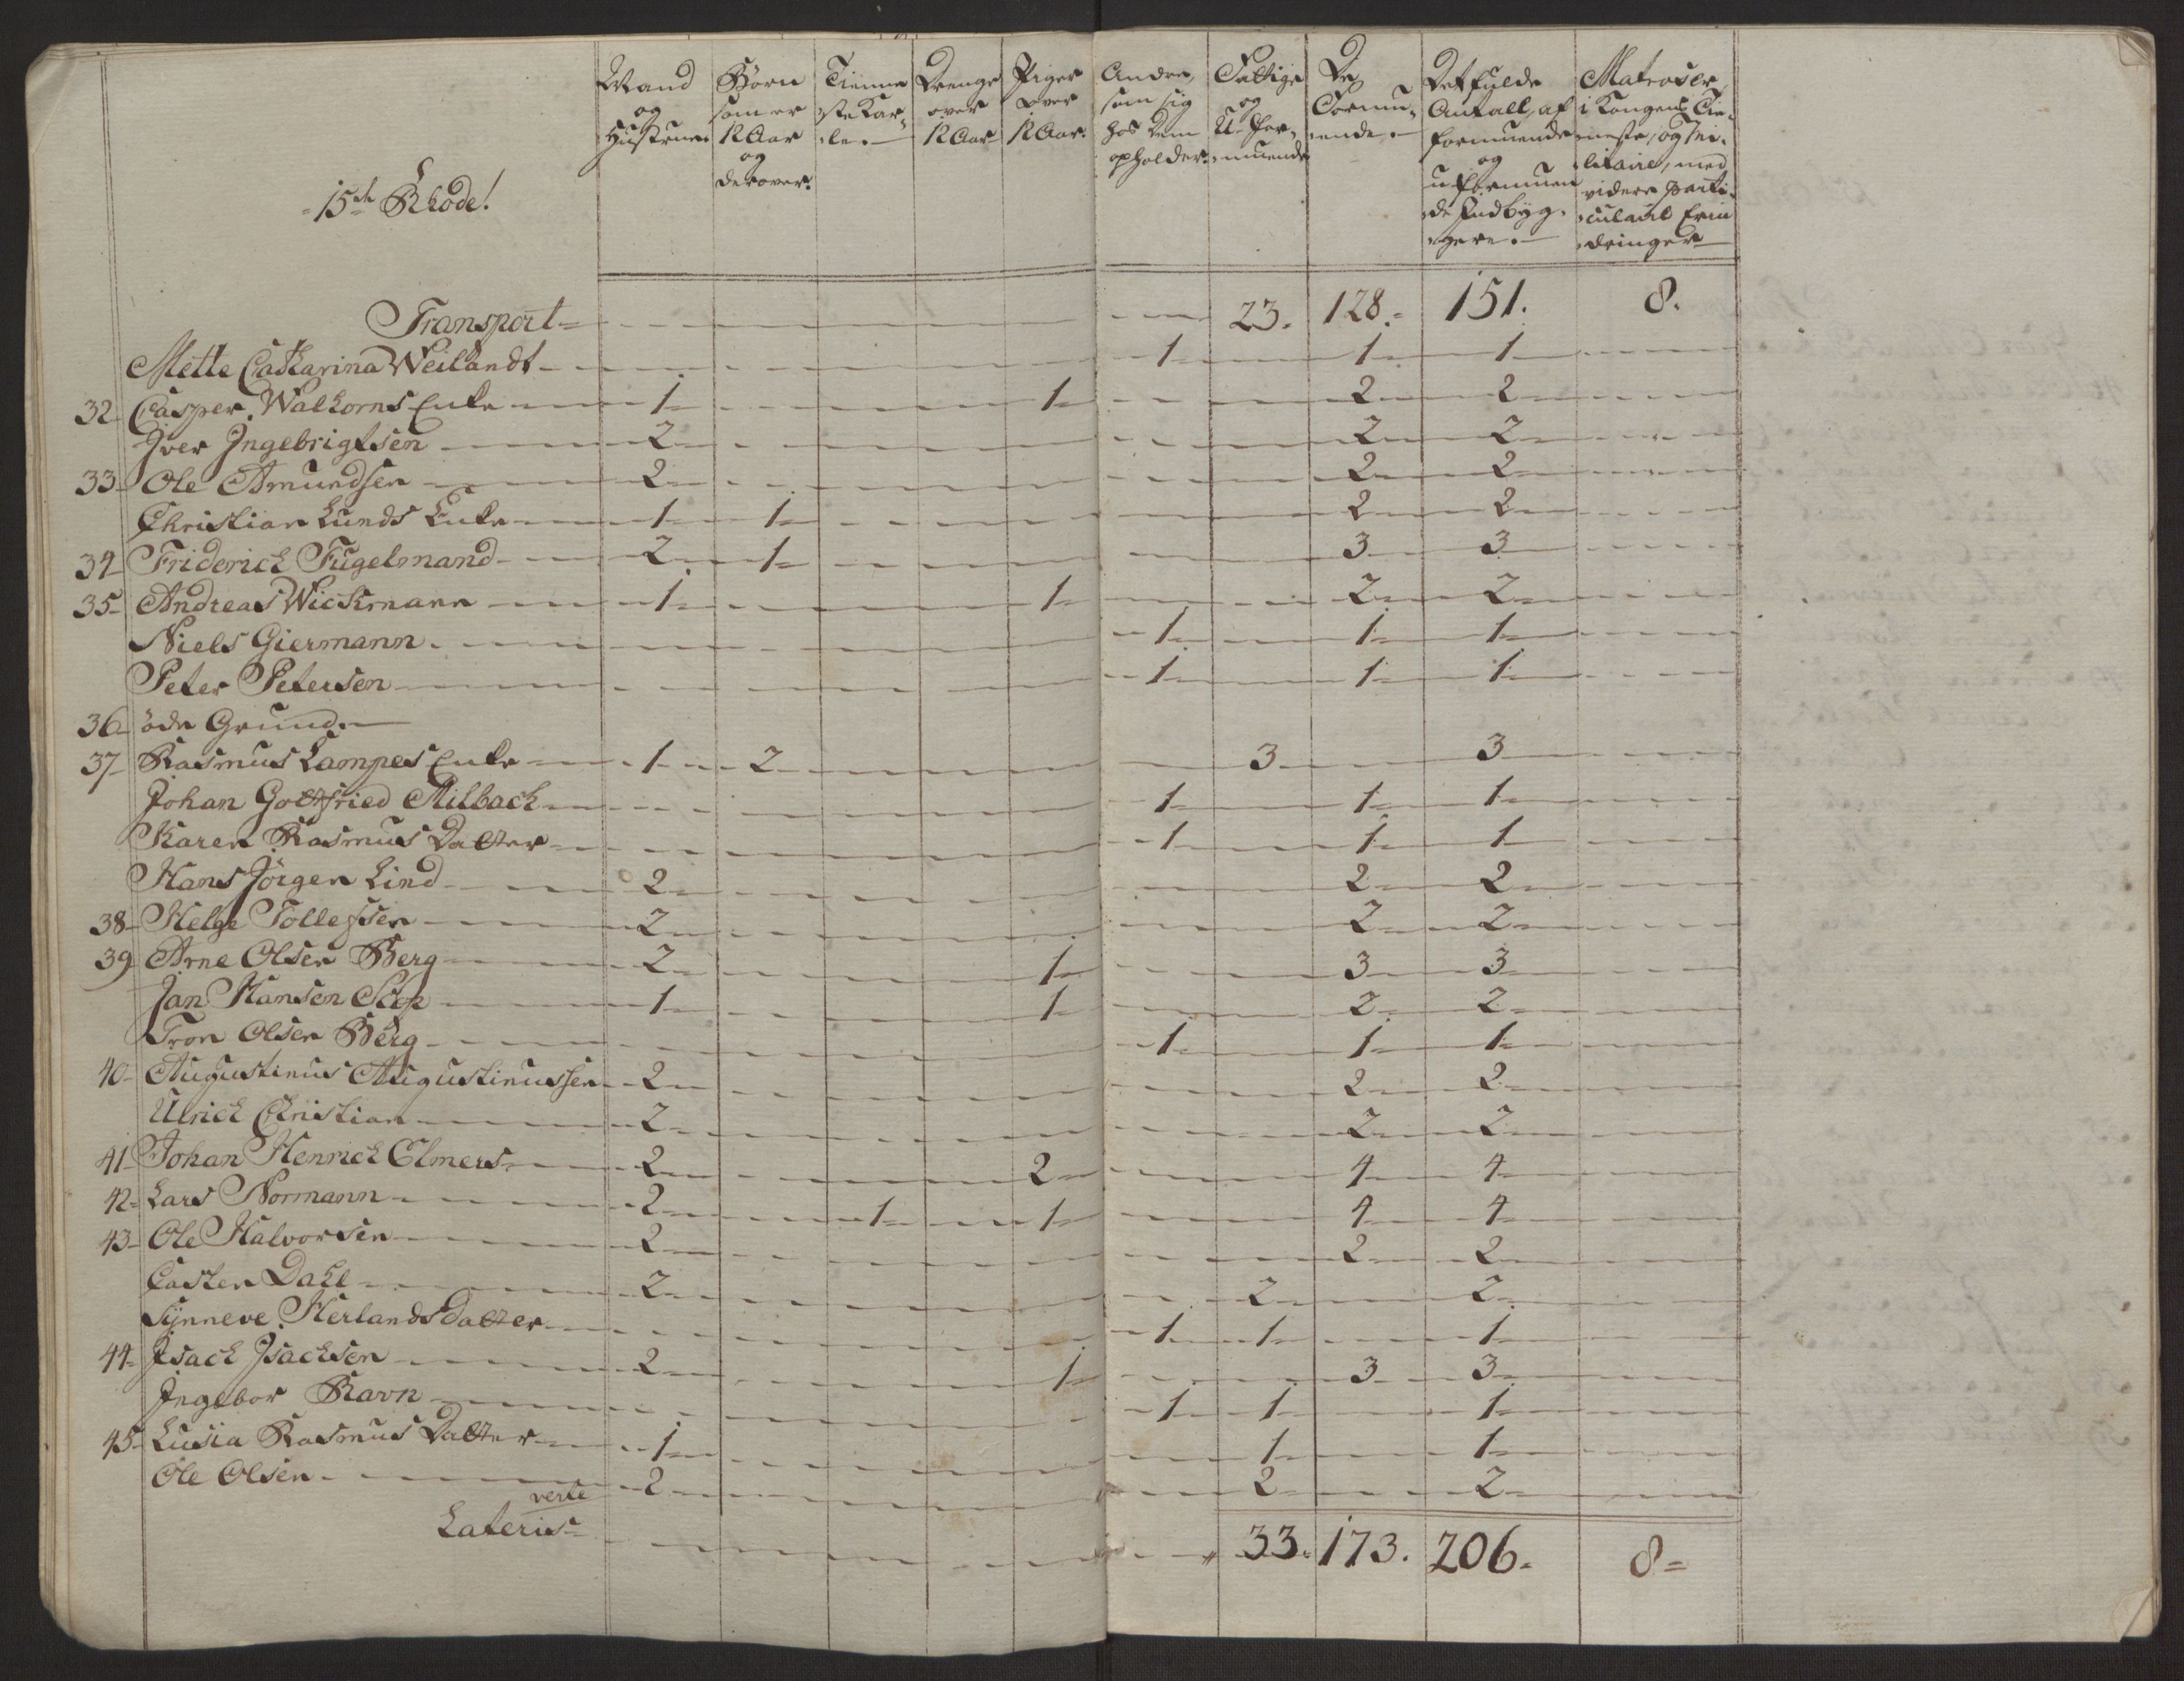 15de Rhode!
Mand og Hustruer
Börn som er 12 Aar og derover.
Tienneste Karle.
Drenge over 12 Aar
Piger over 12 Aar.
Andre, som sig hos dem opholder.
Fattige og U-formuende
De Formuende.
Det fulde Antall, af formuende og uformuende Indbyggere.
Matroser, i Kongens Tieneste, og militaire, med videre particulaire Erindringer
Transport 23. 128. 151. 8.
Mette Catharina Weilandt 1 1 1
32 Casper Walhorns Enke 1 1 2 2
Iver Ingebrigtsen 2 2 2
33 Ole Amundsen 2 2 2
Christian Lunds Enke 1 1 2 2
34 Friderich Fugelmand 2 1 3 3
35 Andreas Wickmann 1 1 2 2
Niels Giermann 1 1 1
Peter Petersen 1 1 1
36 öde Grund
37 Rasmus Lampes Enke 1 2 3 3
Johan Gottfried Milbach 1 1 1
Karen Rasmus Datter 1 1 1
Hans Jörgen Lind 2 2 2
38 Helge Tollefsen 2 2 2
39 Arne Olsen Berg 2 1 3 3
Jan Hansen 1 1 2 2
Tron Olsen Berg 1 1 1
40 Augustinus Augustinussen 2 2 2
Ulrich Christian 2 2 2
41 Johan Henrich Elmers 2 2 4 4
42 Lars Normann 2 1 1 4 4
43 Ole Halvorsen 2 2 2
Casten Dahl 2 2 2
Synneve Herlands datter 1 1 1
44 Isach Isachsen 2 1 3 3
Ingebor Ravn 1 1 1
45 Lusia Rasmus Datter 1 1 1
Ole Olsen 2 2 2
verte
Lateris 33. 173. 206. 8